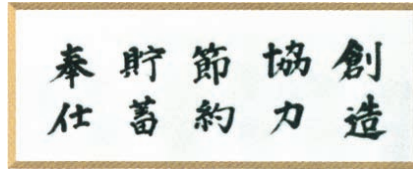 創造
協力
節約
貯蓄
奉仕